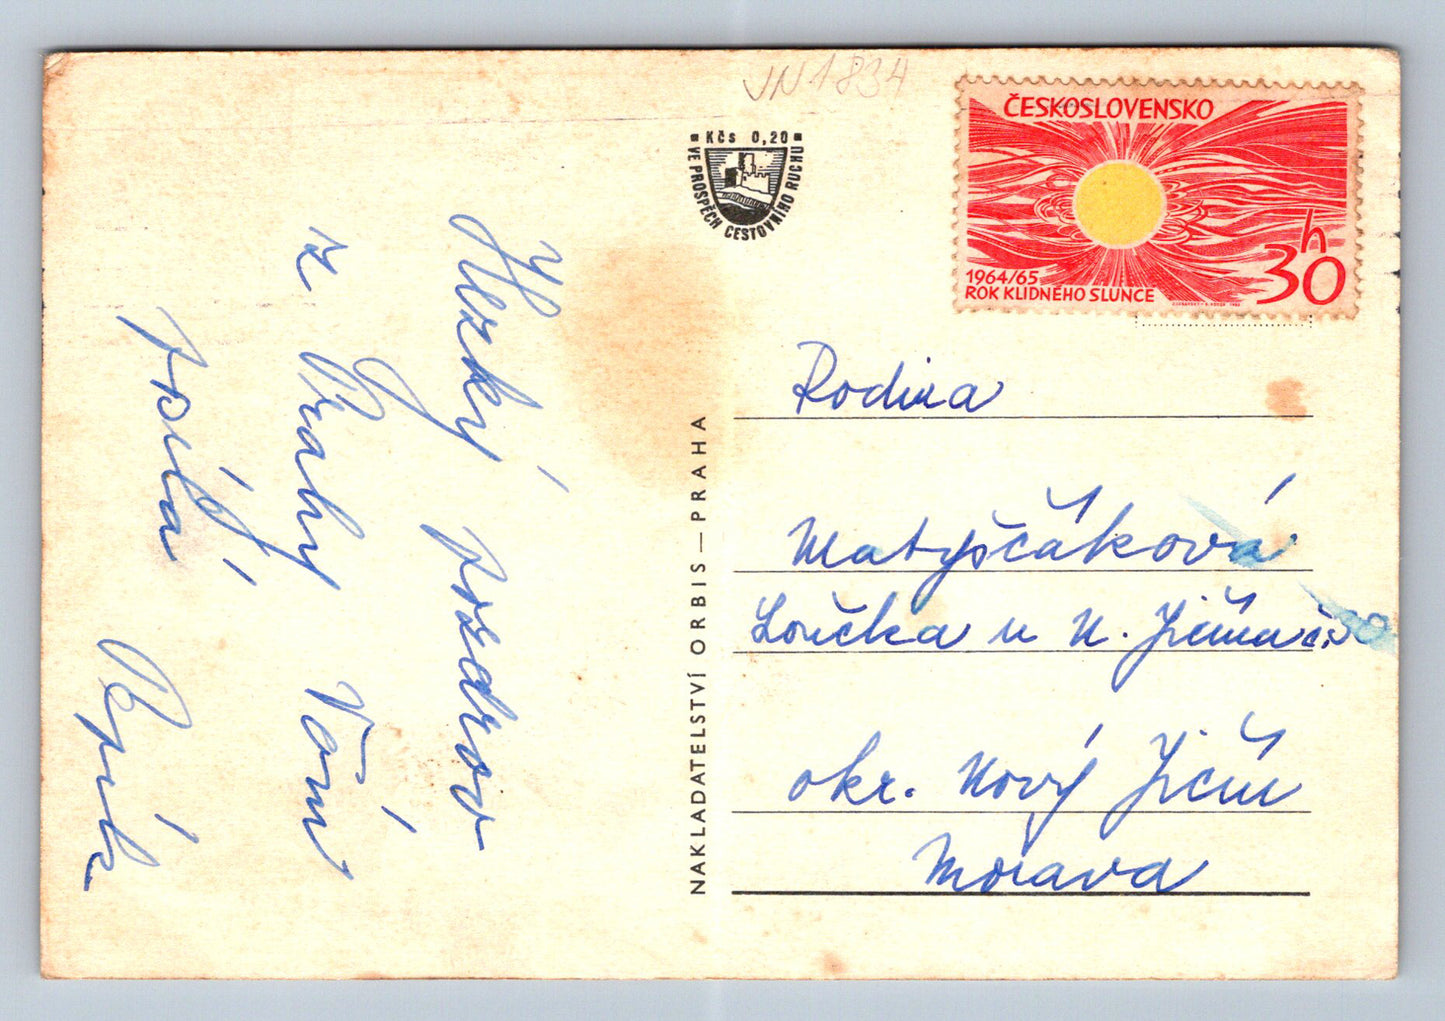 VN 1834
Kčs 0,20
VE PROSPĚCH CESTOVNÍHO RUCHU
ČESKOSLOVENSKO
1964/65
ROK KLIDNÉHO SLUNCE
30 h
Hezký pozdrav
z Prahy Vám
posílá
NAKLADATELSTVÍ ORBIS — PRAHA
Rodina
Matyščáková
Loučka u N. Jičína č.
okr. Nový Jičín
Morava